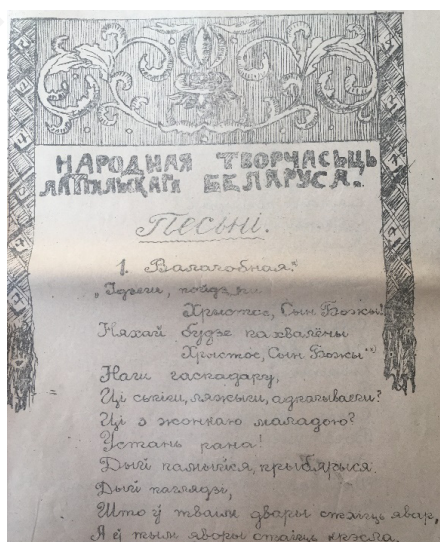 НАРОДНАЯ ТВОРЧАСЬЦЬ
БЕЛАРУСА.
Песьні.
1. Валачобная.
Хрыстос, Сын Божы!
Няхай будзе пахвалёны
Хрыстос, Сын Божы
Наш гаспадару,
Ці сьпіш, ляжыш, адпачываеш?
Ці з жонкаю маладою?
Устань рана!
Дый памыйся, прыбярыся.
Дый паглядзі,
Што ў тваім двары стаіць явар,
А ў тым яворы стаіць крэсла.